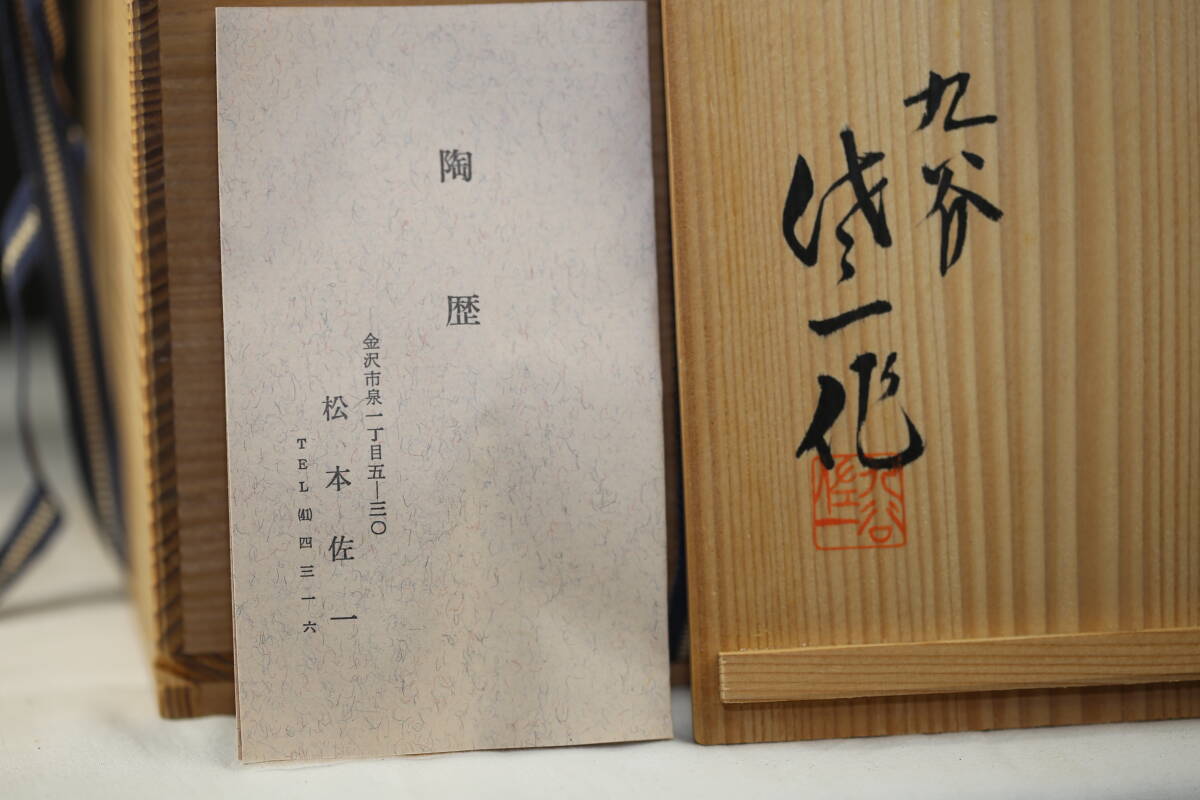 陶歴
金沢市泉一丁目五―三〇
松本佐一
TEL(41)四三一六
九谷
佐一作
九谷
佐一